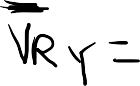 VR Y =